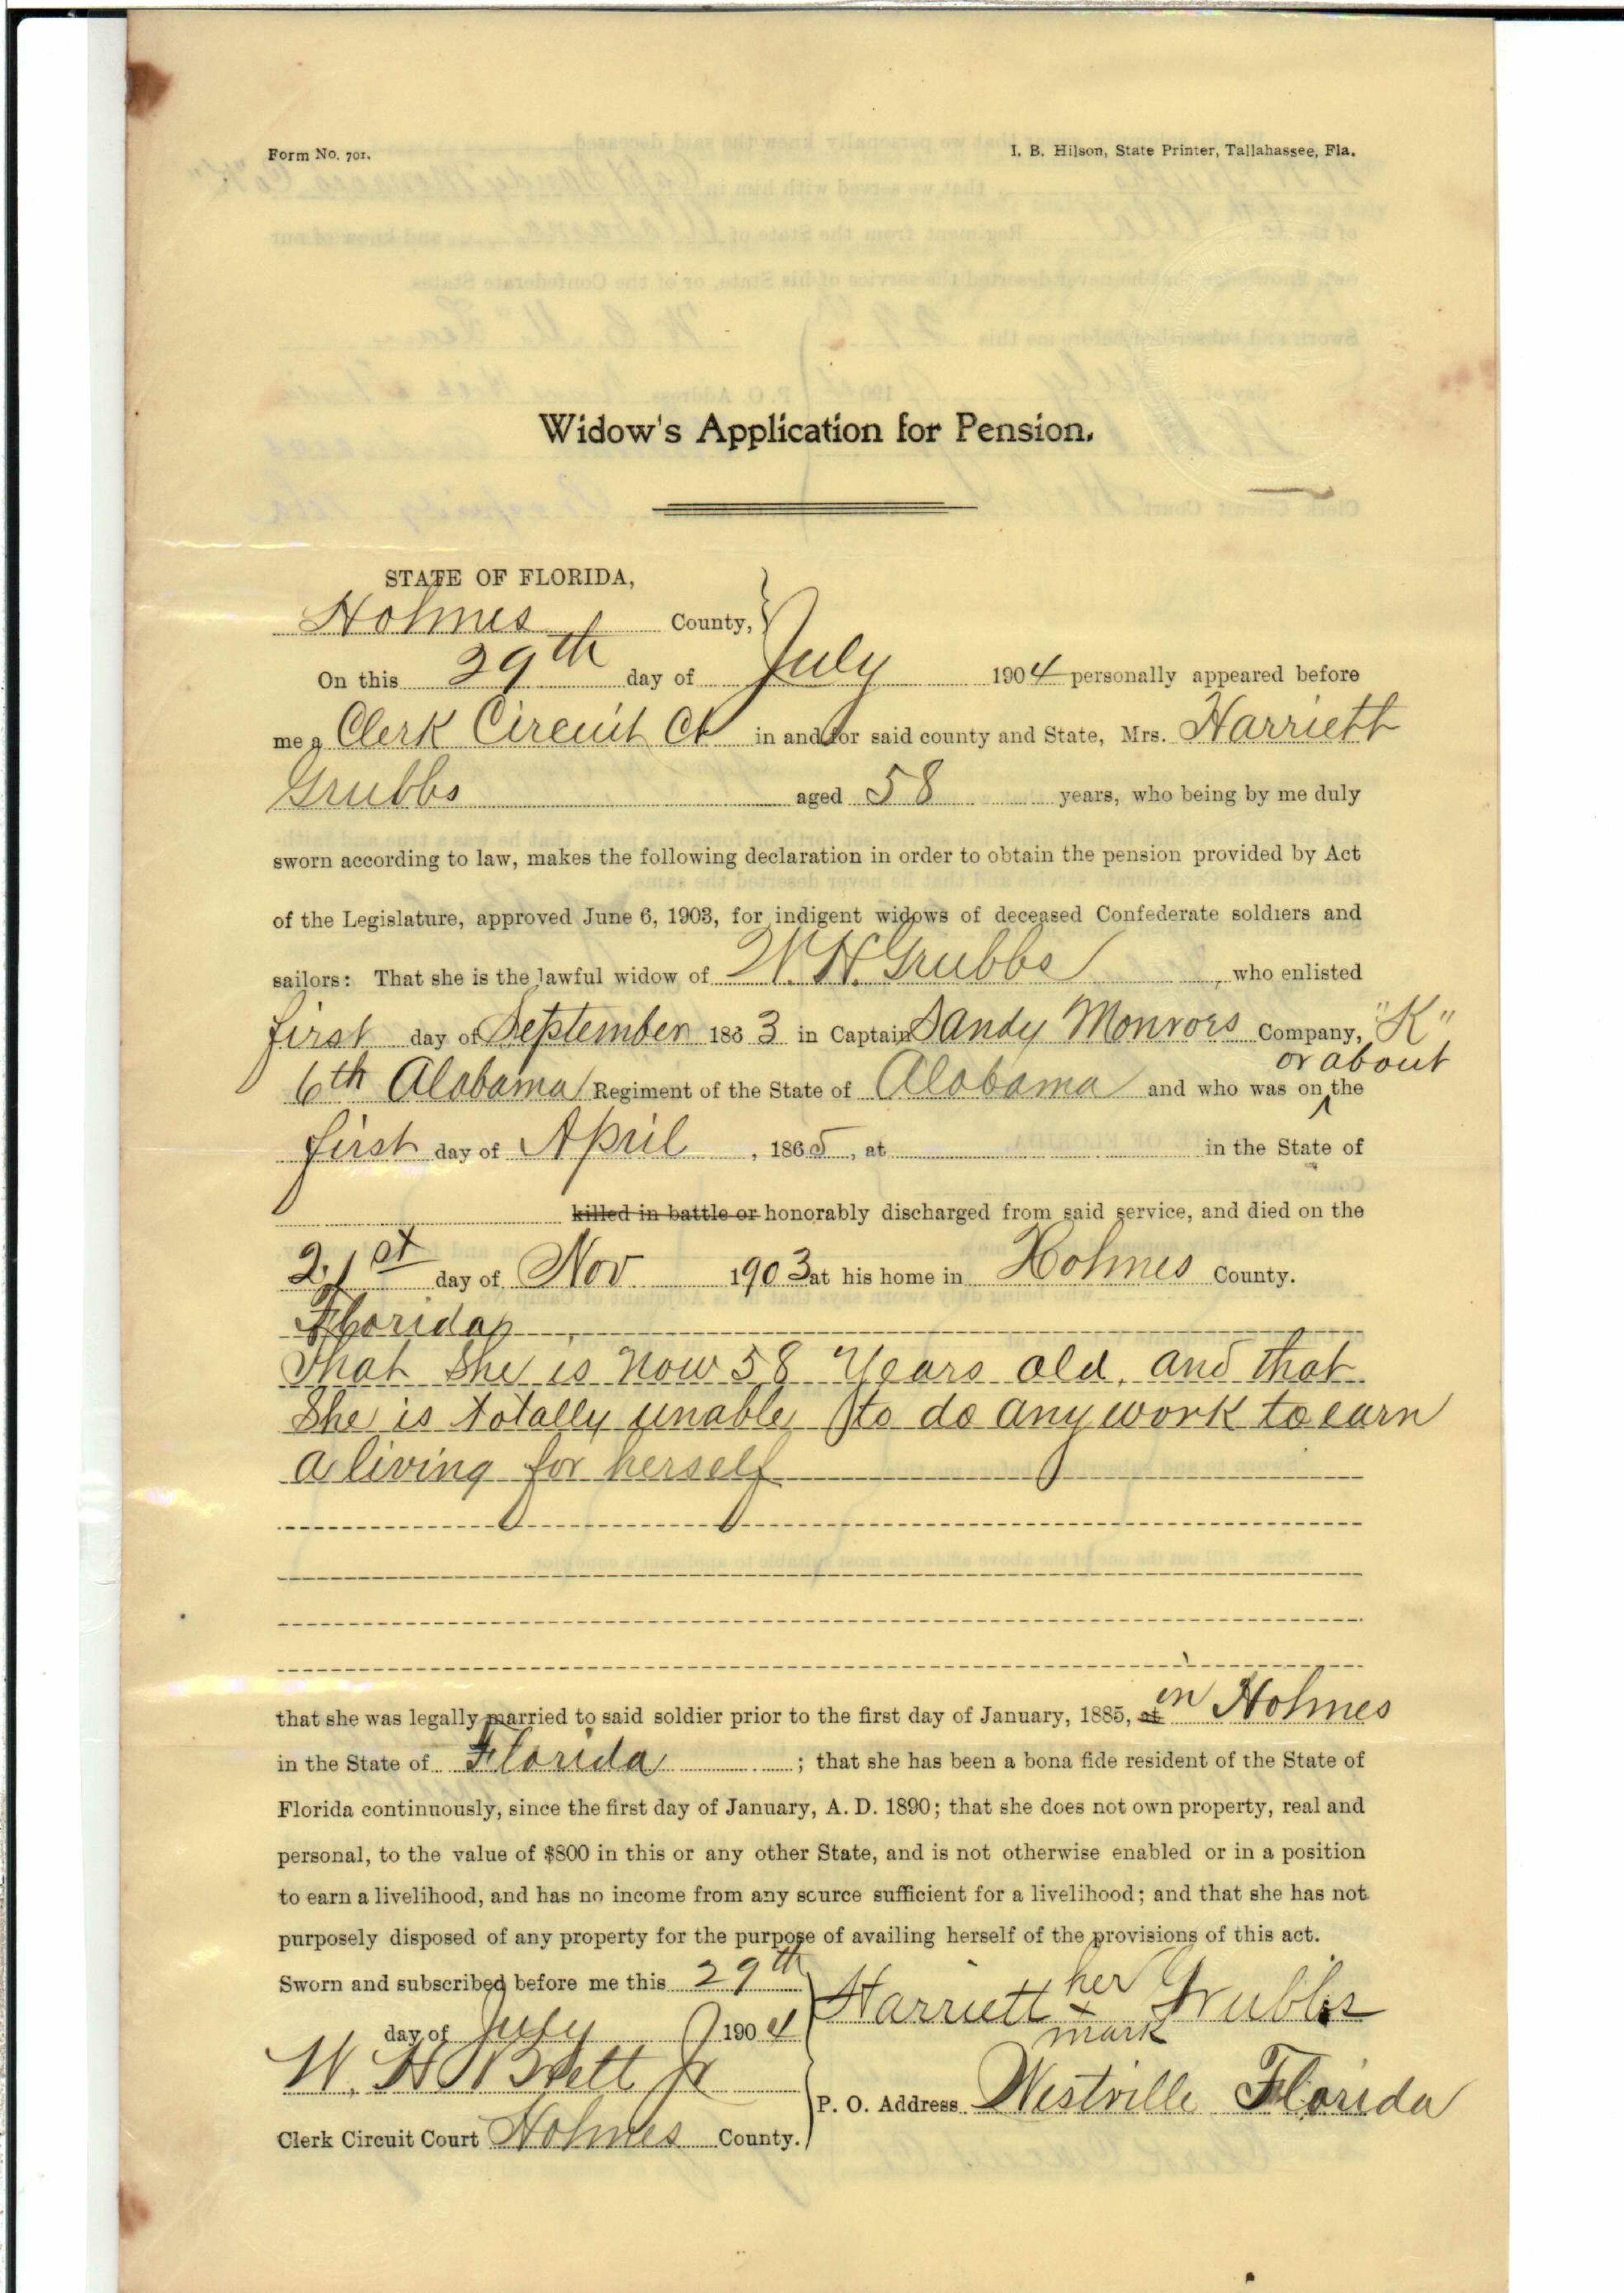 Form No. 701.
I. B. Hilson, State Printer, Tallahassee, Fla.
Widow's Application for Pension.
STATE OF FLORIDA,
Holmes County,
On this 29th day of July 1904 personally appeared before
me a Clerk Circuit Ct in and for said county and State, Mrs. Harriett
Grubbs aged 58 years, who being by me duly
sworn according to law, makes the following declaration in order to obtain the pension provided by Act
of the Legislature, approved June 6, 1903, for indigent widows of deceased Confederate soldiers and
sailors: That she is the lawful widow of W. H. Grubbs, who enlisted
first day of September 1863 in Captain Sandy Monrors Company, "K"
or about
6th Alabama Regiment of the State of Alabama and who was on the
first day of April, 1865, at in the State of
killed in battle or honorably discharged from said service, and died on the
21st day of Nov 1903 at his home in Holmes County.
Florida
That she is now 58 years old, and that
She is totally unable to do any work to earn
a living for herself
that she was legally married to said soldier prior to the first day of January, 1885, at in Holmes
in the State of Florida; that she has been a bona fide resident of the State of
Florida continuously, since the first day of January, A. D. 1890; that she does not own property, real and
personal, to the value of $800 in this or any other State, and is not otherwise enabled or in a position
to earn a livelihood, and has no income from any source sufficient for a livelihood; and that she has not
purposely disposed of any property for the purpose of availing herself of the provisions of this act.
Sworn and subscribed before me this 29th
day of July 1904
W. H. Brett Jr
Clerk Circuit Court Holmes County.
her
Harriett x Grubbs
mark
P. O. Address Westville Florida